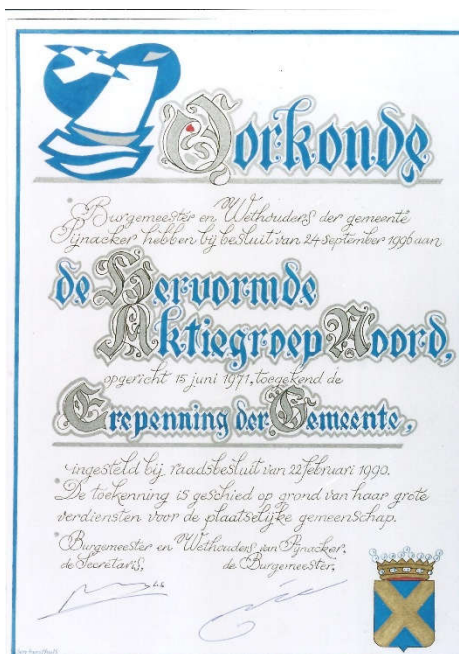 Oorkonde
Burgemeester en Wethouders der gemeente
Pijnacker hebben bij besluit van 24 september 1996 aan
de Hervormde
Aktiegroep Noord,
opgericht 15 juni 1971, toegekend de
Erepenning der Gemeente,
ingesteld bij raadsbesluit van 22 februari 1990.
De toekenning is geschied op grond van haar grote
verdiensten voor de plaatselijke gemeenschap.
Burgemeester en Wethouders van Pijnacker,
de Secretaris, de Burgemeester,